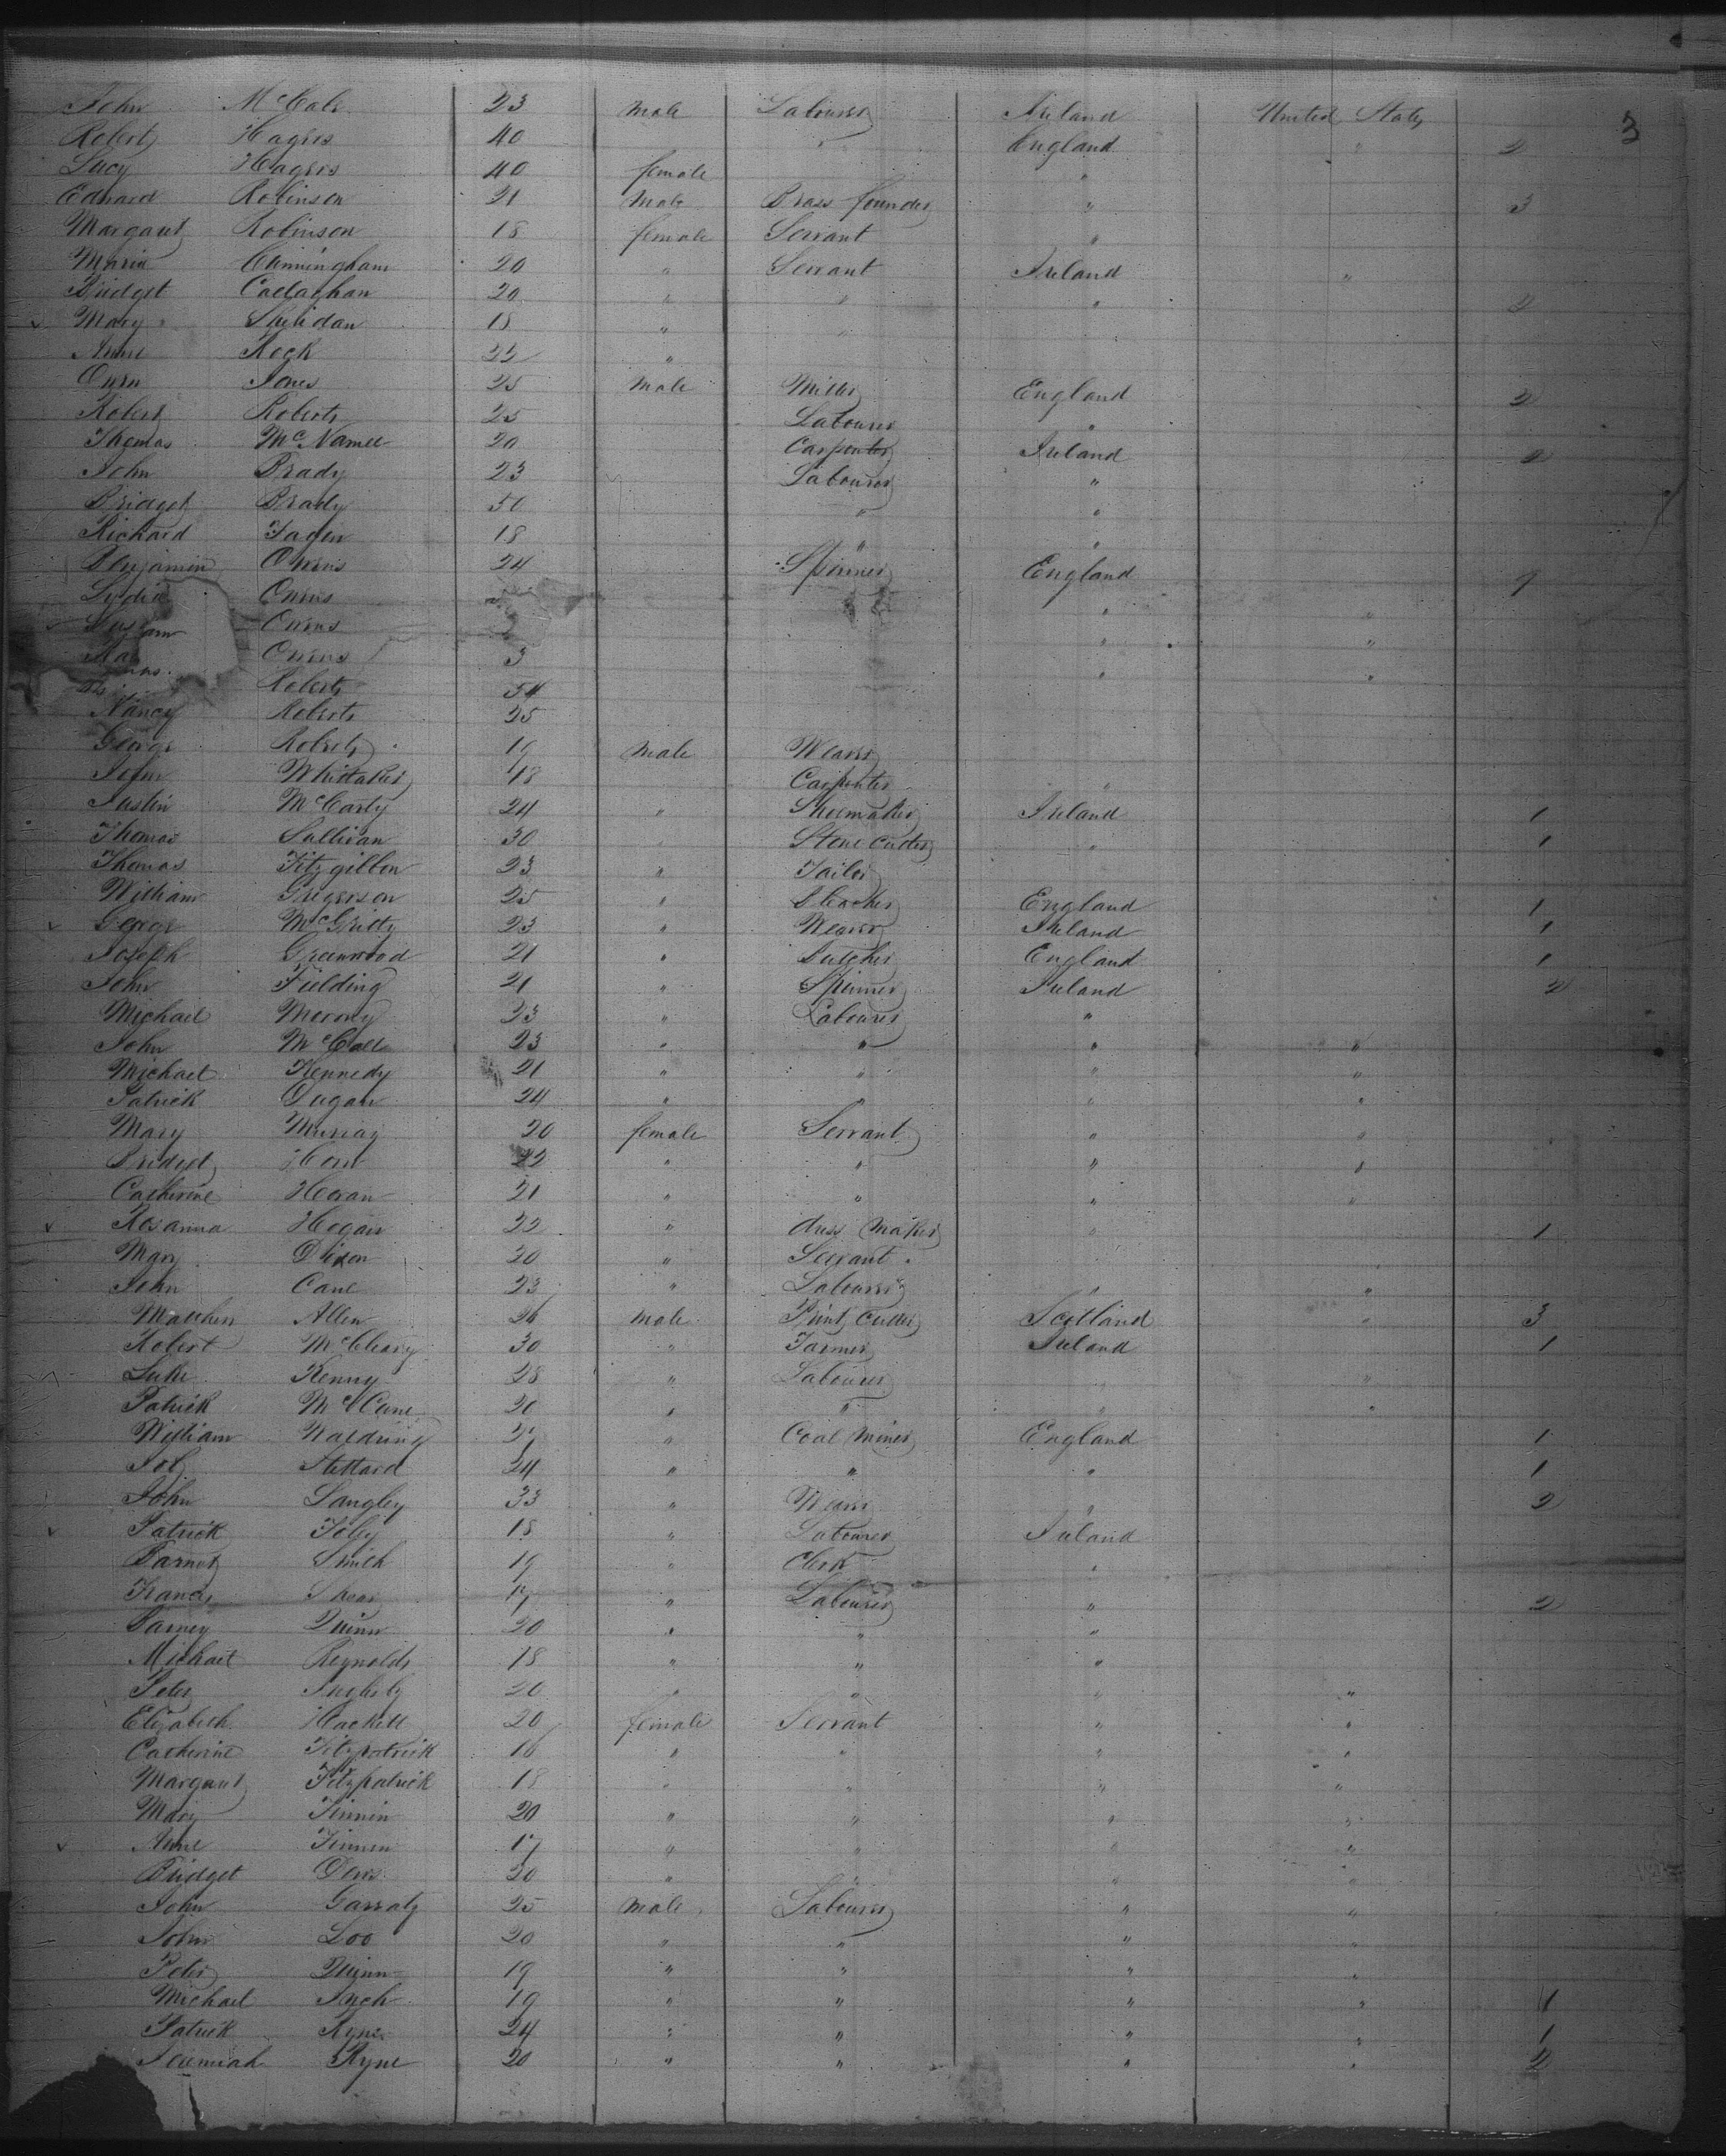 3
John McCabe 23 male Labourer Ireland United States
Robert Hagers 40 " England " 2
Lucy Hagers 40 female "
Edward Robinson 21 Male Brass founder " 3
Margaret Robinson 18 female Servant "
Maria Cunningham 20 " Servant Ireland "
Bridget Callaghan 20 " " " 2
Mary Sheridan 18 " "
Anne Rock 22 "
Owen Jones 25 Male Miller England 2
Robert Roberts 25 Labourer "
Thomas McNamee 20 Carpenter Ireland 2
John Brady 23 Labourer "
Bridget Brady 50 " "
Richard Fagen 18 " "
Benjamin Owens 24 Spinner England 7
Lydia Owens " "
Owens " "
Owens 3 " "
Roberts 54
Nancy Roberts 25
George Roberts 19 male Weaver
John Whittaker 18 Carpenter "
Justin McCarty 24 " Shoemaker Ireland 1
Thomas Sullivan 30 " Stone Cutter " 1
Thomas Fitzgibbon 23 " Tailor
William Gregerson 25 " Bleacher England 1
George McGritty 23 " Weaver Ireland 1
Joseph Greenwood 21 " Butcher England 1
John Fielding 21 " Spinner Ireland 2
Michael Morony 23 " Labourer "
John McCall 23 " " " "
Michael Kennedy 21 " " " "
Patrick Dugan 24 " " " "
Mary Murray 20 female Servant " "
Bridget Horn 22 " " " "
Catherine Horan 21 " " " "
Rosanna Hogan 22 " dress Maker " 1
Mary Dixon 20 " Servant
John Cane 23 " Labourer " "
Matthew Allen 26 male Print Cutter Scotland " 3
Robert McCleary 30 " Farmer Ireland 1
Luke Kenny 28 " Labourer "
Patrick McCane 20 " " " "
William Waldring " Coal Miner England 1
Job Stottard 24 " " " 1
John Langley 33 " Weaver " 2
Patrick Foley 18 " Labourer Ireland
Barnet Smith 19 " Clerk "
Francis 17 " Labourer " 2
Barney Quinn 20 " " "
Michael Reynolds 18 " " "
Peter 20 " " " "
Elizabeth Hackett 20 female Servant " "
Catherine Fitzpatrick 16 " " " "
Margaret Fitzpatrick 18 " " " "
Mary Finnin 20 " " " "
Anne Finnen 17 " " " "
Bridget 20 " " " "
John Garraty 25 Male Labourer " "
John Loo 20 " " " "
Peter Quinn 19 " " " "
Michael 19 " " " " 1
Patrick Ryne 24 " " " " 1
Jeremiah Ryne 20 " " " " 2